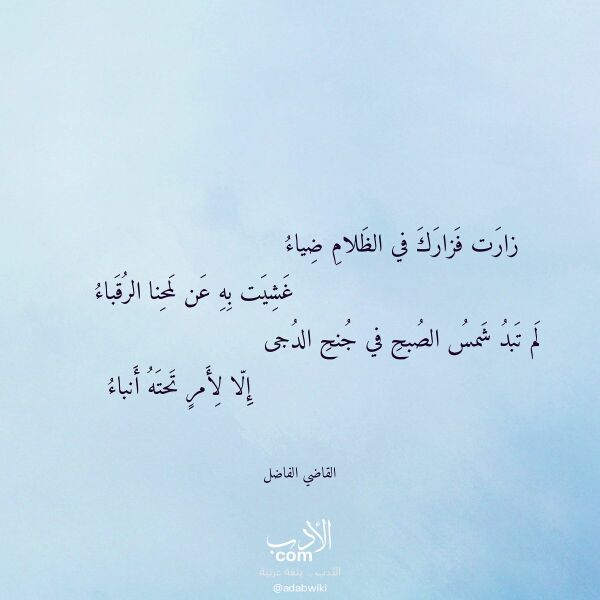 زارَت فَزارَكَ في الظَلامِ ضِياءُ
غَشِيَت بِهِ عَن لَمحِنا الرُقَباءُ
لَم تَبدُ شَمسُ الصُبحِ في جُنحِ الدُجى
إِلّا لِأَمرٍ تَحتَهُ أَنباءُ
القاضي الفاضل
الأدب
com
الأدب .. بلغة عربية
@adabwiki